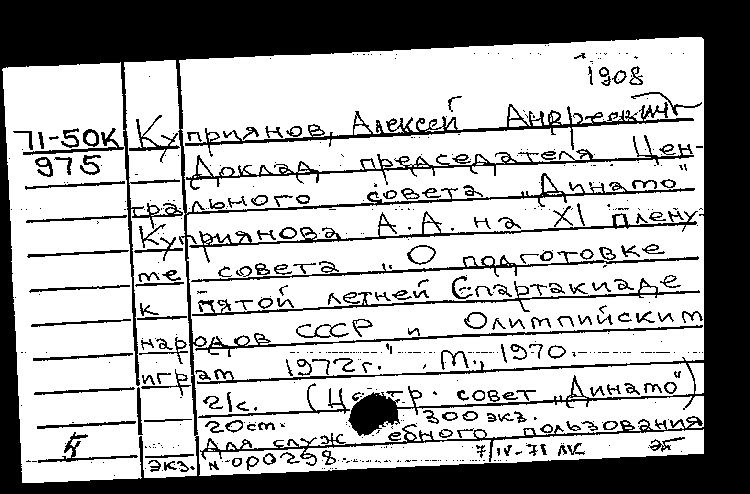 1908
71-50К Куприянов, Алексей Андреевич
975 Доклад председателя Цен-
трального совета „Динамо"
Куприянова А.А. на XI плену-
ме совета „О подготовке
к пятой летней Спартакиаде
народов СССР и Олимпийским
играм 1972г." М., 1970.
21с. (Центр. совет „Динамо")
20см. 300 экз.
Для служебного пользования
экз. N-000298. 7/IV-71